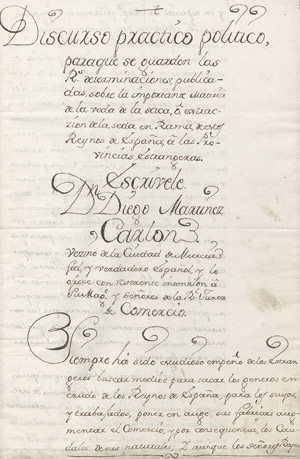 Discurso practico politico,
para que se guarden las
Rs. determinaciones, publica-
das, sobre la importante Materia
de la veda de la saca, ò extrac-
zion de la seda en Rama, de estos
Reynos de España, à las Pro-
vincias Estrangeras.
Escrivele.
Dn. Diego Martinez
Carlon
Vezino de la Ciudad de Murcia
fiel, y verdadero Español, y lo
ofreze con reverente intencion à
Su Mag. y Señores de la Rl. Junta
de Comercio.
Siempre hà sido estudioso empeño de los Estran
geros buscar medios para sacar los generos en
crudo de los Reynos de España, para los suyos,
y trabajados, poner en auge sus fabricas aug-
mentar el Comercio, y por consequencia, los Cau-
dales de sus naturales; Y aunque los Señores Reyes